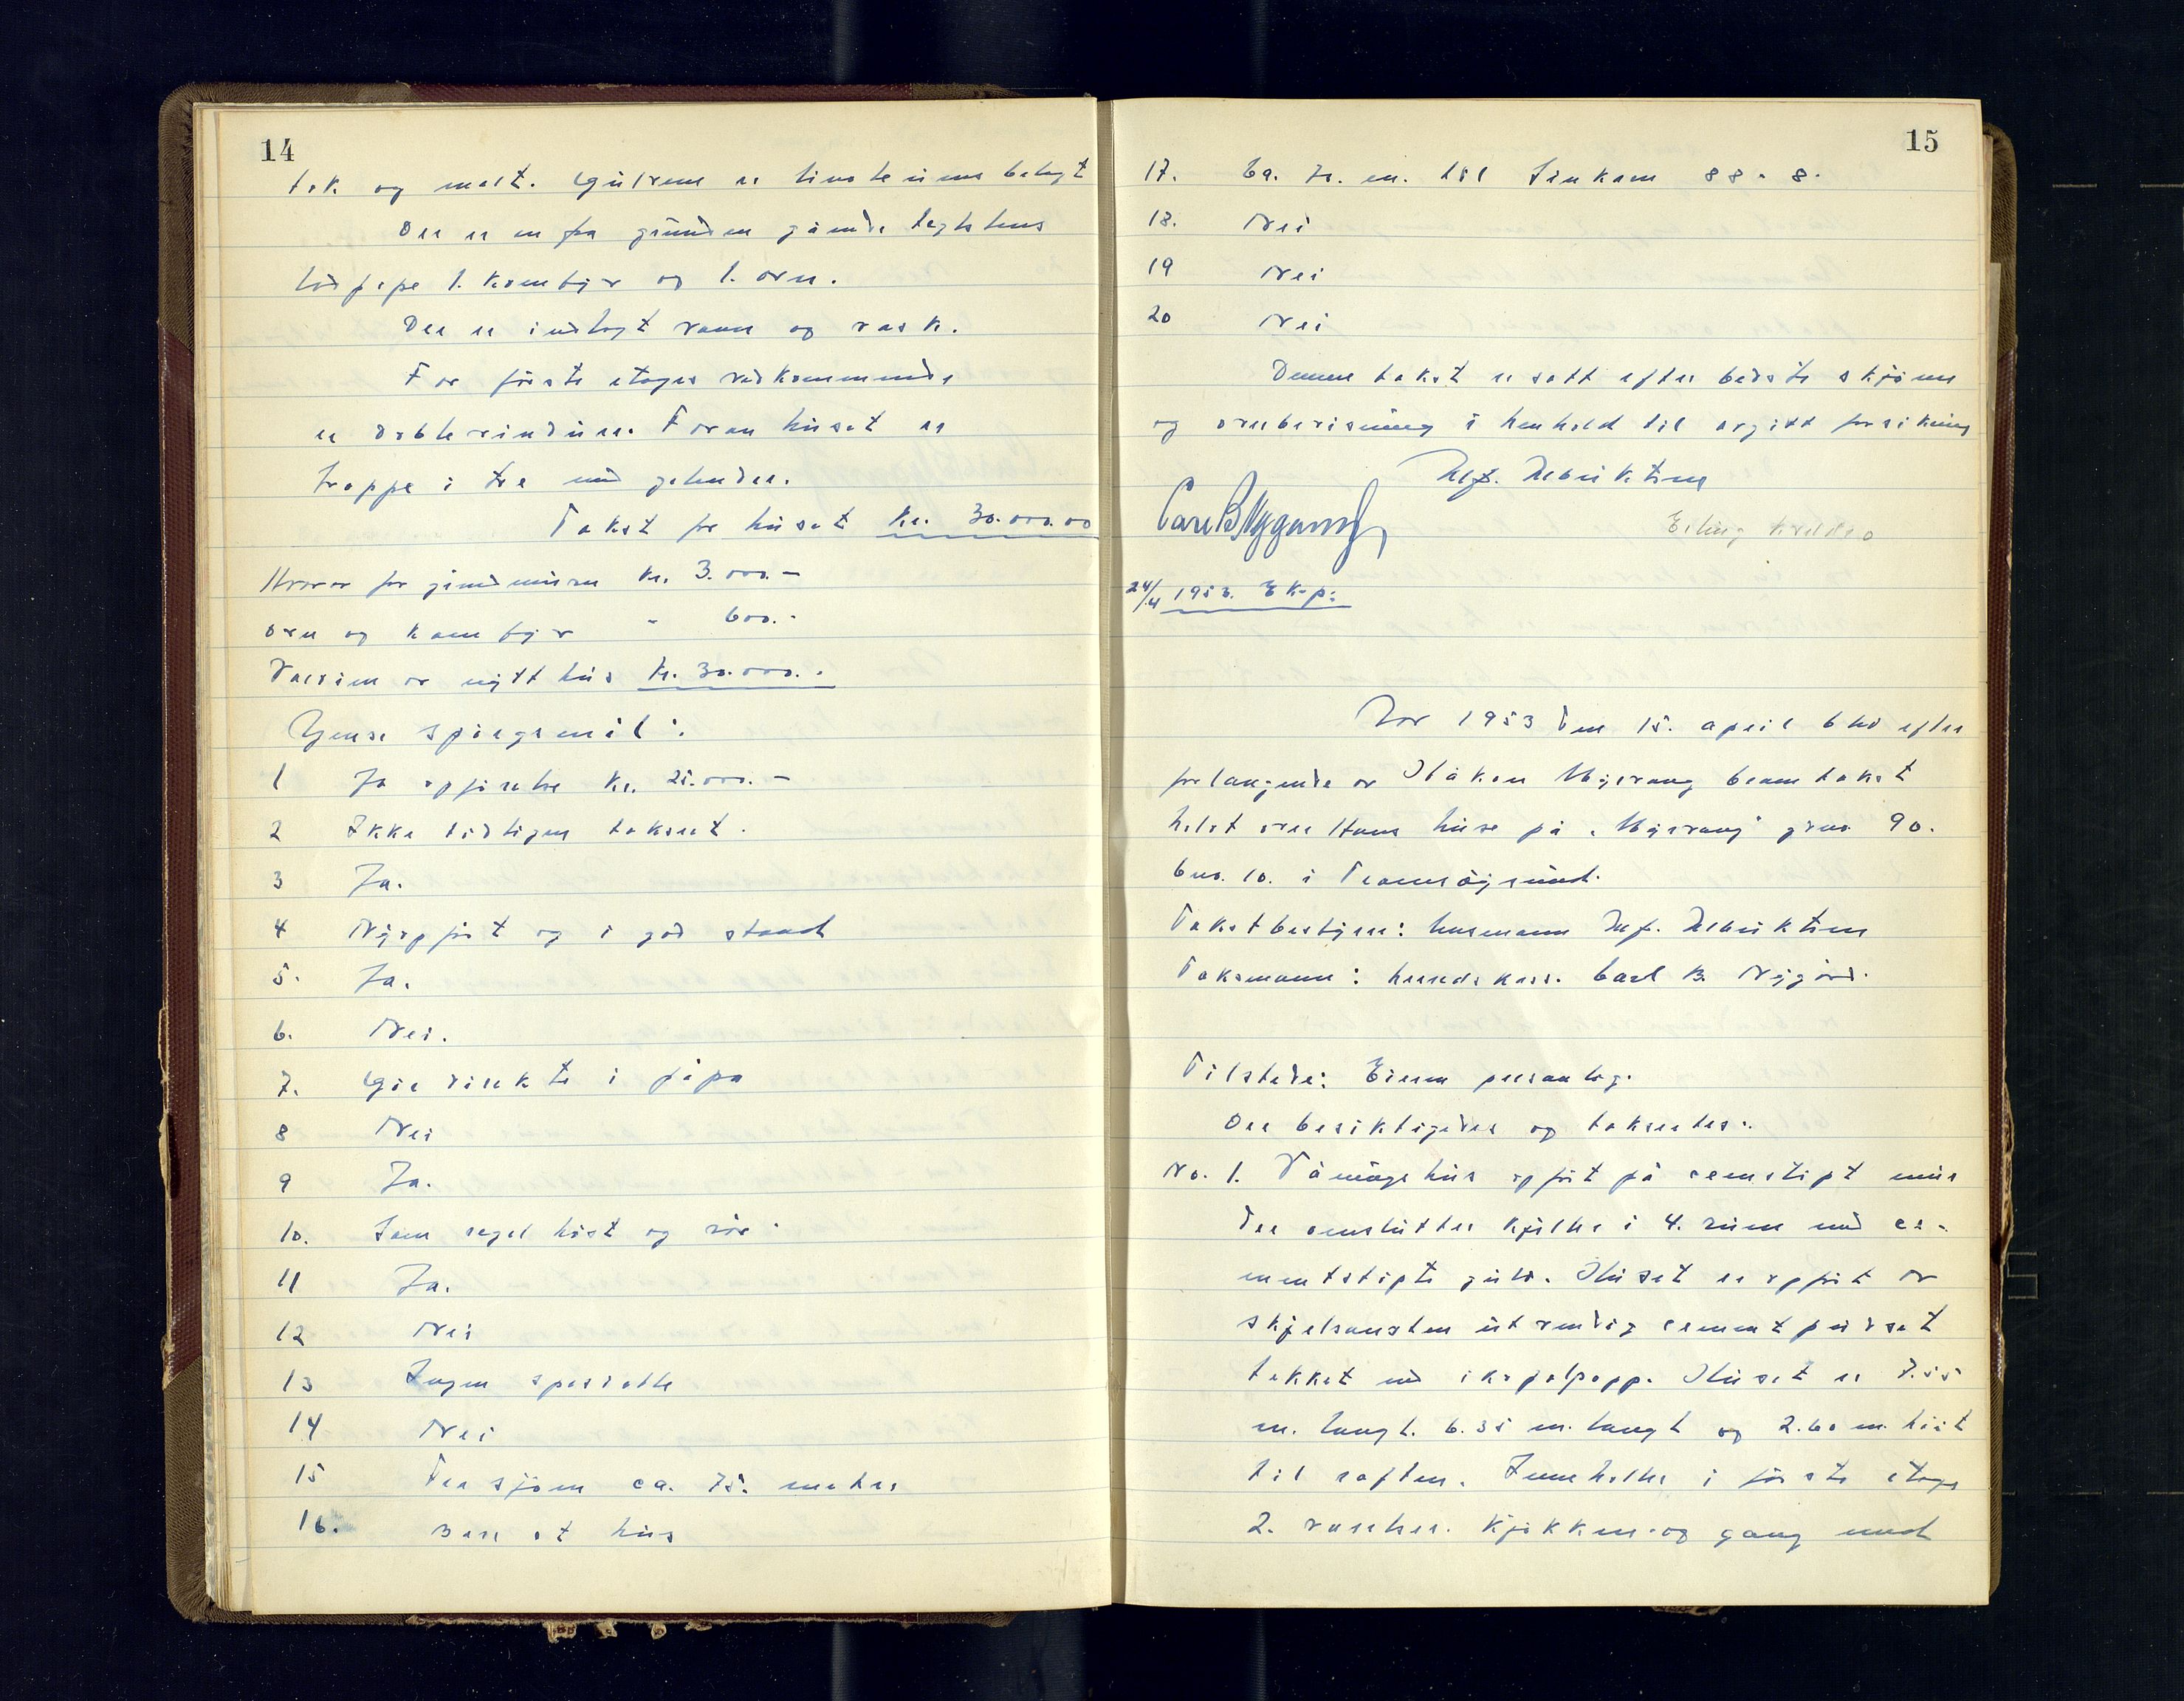 14
tak og malt. Gulvene er linoleums belagt
Der er en fra grunnen gående teglstens
lodpipe 1. komfyr og 1. ovn.
Der er indlagt vann og vask.
For første etages vedkommende
er doble vinduer. Foran huset er
trappe i tre med gelender.
Takst for huset kr. 30.000.00
Hvorav for grundmuren kr. 3.000.-
ovn og komfyr " 600.-
Verdien av nytt hus kr. 30.000.-
Gjense spørgsmål:
1 Ja opførelse kr. 25.000.-
2 Ikke tidligere taksert.
3 Ja.
4 Nyopført og i god stand
5. Ja.
6. Nei.
7. Går direkte i pipa
8 Nei
9 Ja.
10. Som regel høst og vår.
11 Ja.
12 Nei
13 Ingen spesielle
14 Nei
15 Fra sjøen ca. 75. meter
16. Bare et hus
15
17. Ca. 70. m. til
18. Nei
19 Nei
20 Nei
Denne takst er satt efter bedste skjønn
og overbevisning i henhold til avgitt forsikring
Alf. Hebriktsen
Carl B Nygaard
Erling
24/4 1953. Ekp:
År 1953 den 15. april blev efter
forlangende av Håkon Myrvang branntakst
holdt over Hans huse på "Myrvang" gnr. 90.
bno. 10. i Tromsøysund.
Takstbestyrer: lensmann Alf. Hebriktsen
Taksmann: herredskass. Carl B. Nygård.
Tilstede: Eieren personlig.
Der besiktigedes og takseres:
No. 1. Våningshus opført på cemstøpt mur
der omslutter kjeller i 4. rum med ce-
mentstøpt gulv. Huset er opført av
skjelsandsten utvendig cement pudset
tekket med ikopalpapp. Huset er 7.55
m. langt. 6.35 m. langt og 2.60 m. høit
til raften. Inneholder i første etage
2. værelser. Kjøkken. og gang med